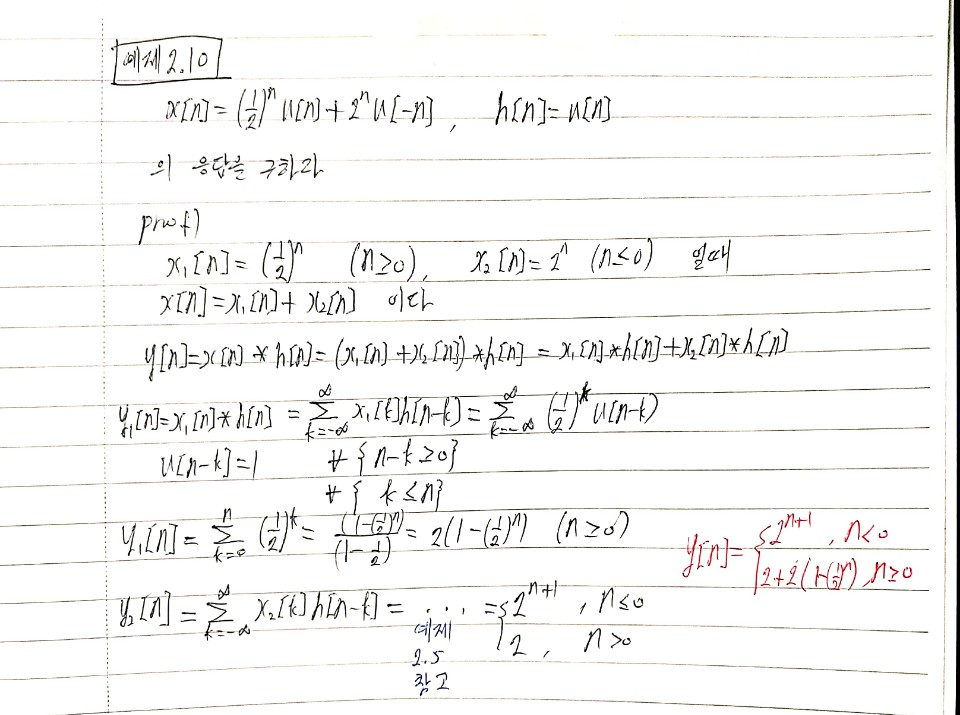 예제 2.10
x[n] = (1/2)^n u[n] + 2^n u[-n] , h[n] = u[n]
의 응답을 구하라
proof)
x₁[n] = (1/2)^n (n≥0), x₂[n] = 2^n (n≤0) 일때
x[n] = x₁[n] + x₂[n] 이다
y[n] = x[n] * h[n] = (x₁[n] + x₂[n]) * h[n] = x₁[n] * h[n] + x₂[n] * h[n]
y₁[n] = x₁[n] * h[n] = ∑_{k=-∞}^{∞} x₁[k] h[n-k] = ∑_{k=-∞}^{∞} (1/2)^k u[n-k)
u[n-k] = 1 ∀ { n-k ≥ 0}
∀ { k ≤ n}
y₁[n] = ∑_{k=0}^{n} (1/2)^k = (1-(1/2)^n)/(1-1/2) = 2(1-(1/2)^n) (n≥0)
y[n] = { 2^{n+1} , n<0
2+2(1-(1/2)^n) , n≥0
y₂[n] = ∑_{k=-∞}^{∞} x₂[k] h[n-k] = ... = { 2^{n+1} , n≤0
2 , n>0
예제
2.5
참고